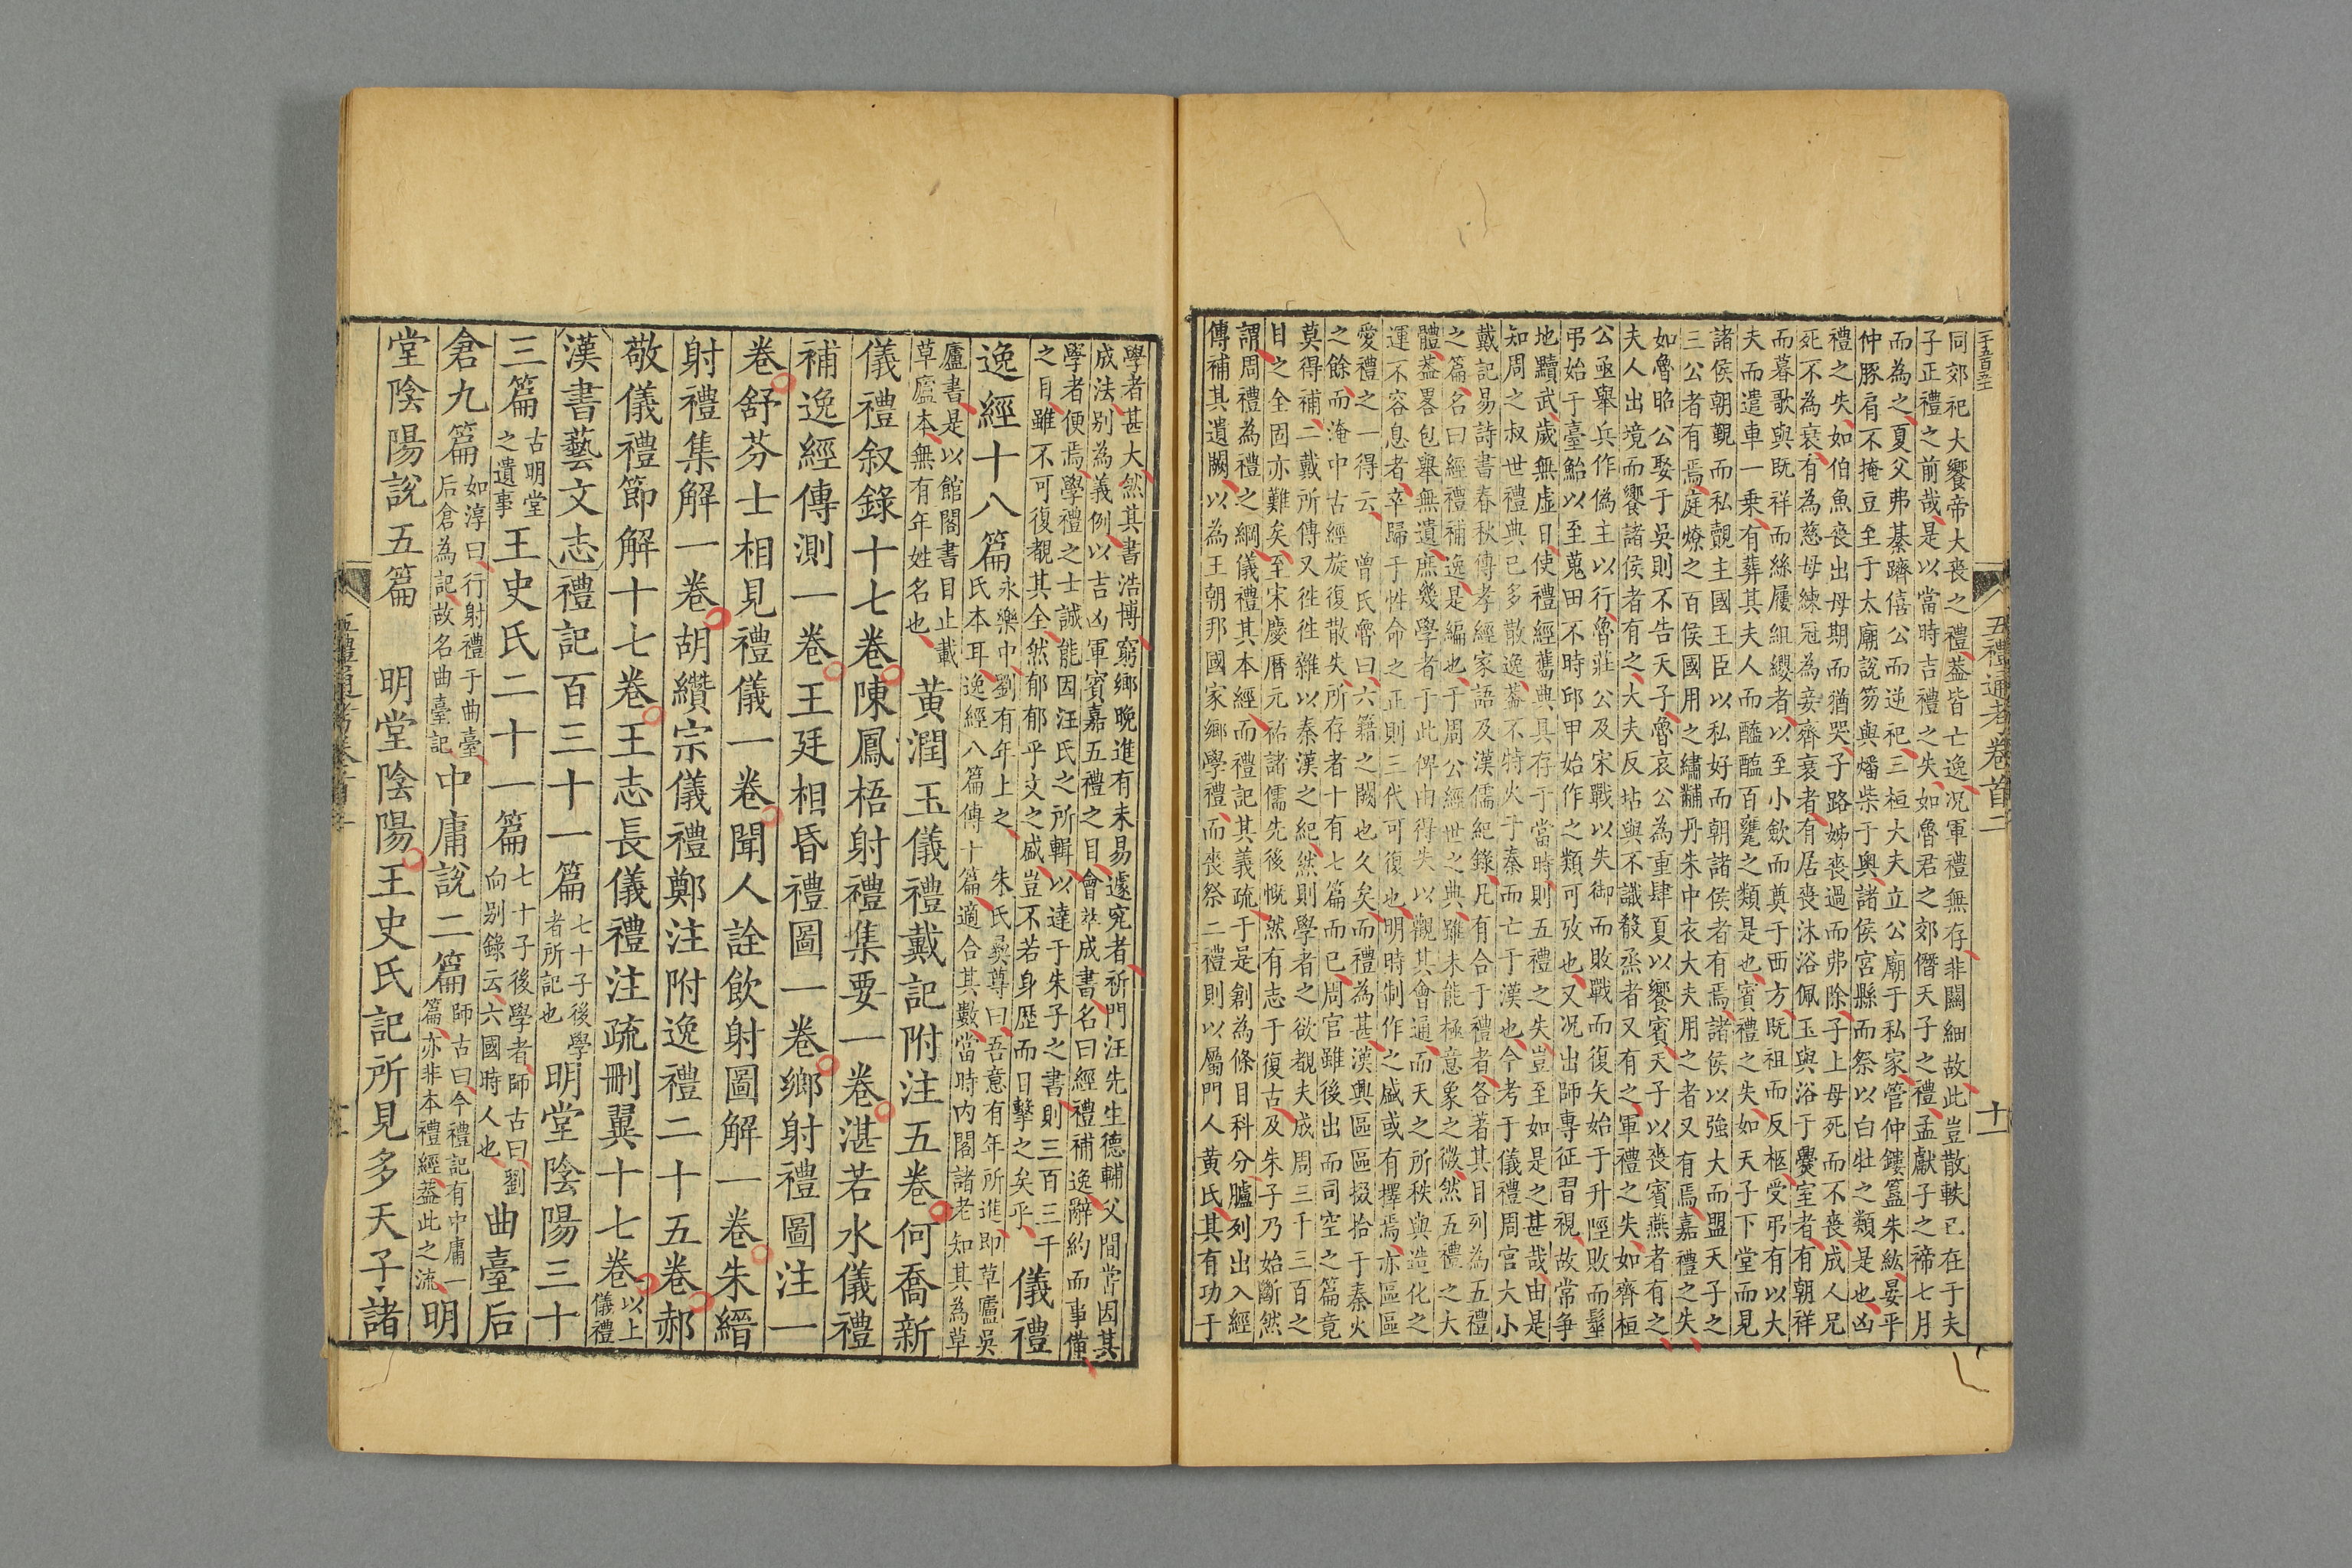 五禮通考卷首二 十一
同郊祀大饗帝大喪之禮蓋皆亡逸况軍禮無存非闊細故此豈散軼已在于夫
子正禮之前哉是以當時吉禮之失如魯君之郊僭天子之禮孟獻子之禘七月
而為之夏父弗綦躋僖公而逆祀三桓大夫立公廟于私家管仲鏤簋朱紘晏平
仲豚肩不掩豆至于太廟說笏與燔柴于奧諸侯宮縣而祭以白牡之類是也凶
禮之失如伯魚喪出母期而猶哭子路姊喪過而弗除子上母死而不喪成人兄
死不為衰有為慈母練冠為妾齊衰者有居喪沐浴佩玉與浴于爨室者有朝祥
而暮歌與既祥而絲屨組纓者以至小斂而奠于西方既祖而反柩受弔有以大
夫而遣車一乘有葬其夫人而醯醢百甕之類是也賓禮之失如天子下堂而見
諸侯朝覲而私覿主國王臣以私好而朝諸侯者有焉諸侯以強大而盟天子之
三公者有焉庭燎之百侯國用之繡黼丹朱中衣大夫用之者又有焉嘉禮之失
如魯昭公娶于吳則不告天子魯哀公為重肆夏以饗賓天子以喪賓燕者有之
夫人出境而饗諸侯者有之大夫反坫與不識殽烝者又有之軍禮之失如齊桓
公亟舉兵作偽主以行魯莊公及宋戰以失御而敗戰而復矢始于升陘敗而髽
弔始于臺鮐以至蒐田不時邱甲始作之類可攷也又况出師專征習視故常爭
地黷武歲無虛日使禮經舊典具存于當時則五禮之失豈至如是之甚哉由是
知周之叔世禮典已多散逸蓋不特火于秦而亡于漢也今考于儀禮周官大小
戴記易詩書春秋傳孝經家語及漢儒紀錄凡有合于禮者各著其目列為五禮
之篇名曰經禮補逸是編也于周公經世之典雖未能極意象之微然五禮之大
體蓋畧包舉無遺庶幾學者于此俾由得失以觀其會通而天之所秩與造化之
運不容息者卒歸于性命之正則三代可復也明時制作之盛或有擇焉亦區區
愛禮之一得云 曾氏魯曰六籍之闕也久矣而禮為甚漢興區區掇拾于秦火
之餘而淹中古經旋復散失所存者十有七篇而已周官雖後出而司空之篇竟
莫得補二戴所傳又往往雜以秦漢之紀然則學者之欲覩夫成周三千三百之
目之全固亦難矣至宋慶曆元祐諸儒先後慨然有志于復古及朱子乃始斷然
謂周禮為禮之綱儀禮其本經而禮記其義疏于是創為條目科分臚列出入經
傳補其遺闕以為王朝邦國家鄉學禮而喪祭二禮則以屬門人黄氏其有功于
學者甚大然其書浩博窮鄉晚進有未易遽究者祈門汪先生德輔父間常因其
成法别為義例以吉凶軍賓嘉五禮之目會粹成書名曰經禮補逸辭約而事備
學者便焉學禮之士誠能因汪氏之所輯以達于朱子之書則三百三千
之目雖不可復覩其全然郁郁乎文之盛豈不若身歷而目擊之矣乎 儀禮
逸經十八篇 永樂中劉有年上之 朱氏彝尊曰吾意有年所進即草廬吳
氏本耳逸經八篇傳十篇適合其數當時内閣諸老知其為草
廬書是以館閣書目止載
草廬本無有年姓名也 黃潤玉儀禮戴記附注五卷何喬新
儀禮叙錄十七卷陳鳳梧射禮集要一卷湛若水儀禮
補逸經傳測一卷王廷相昏禮圖一卷鄉射禮圖注一
卷舒芬士相見禮儀一卷聞人詮飲射圖解一卷朱縉
射禮集解一卷胡纘宗儀禮鄭注附逸禮二十五卷郝
敬儀禮節解十七卷王志長儀禮注疏刪翼十七卷 以上儀禮
漢書藝文志禮記百三十一篇 七十子後學者所記也 明堂陰陽三十
三篇 古明堂之遺事 王史氏二十一篇 七十子後學者師古曰劉向别錄云六國時人也 曲臺后
倉九篇 如淳曰行射禮于曲臺后倉為記故名曲臺記 中庸說二篇 師古曰今禮記有中庸一篇亦非本禮經蓋此之流 明
堂陰陽說五篇 明堂陰陽王史氏記所見多天子諸